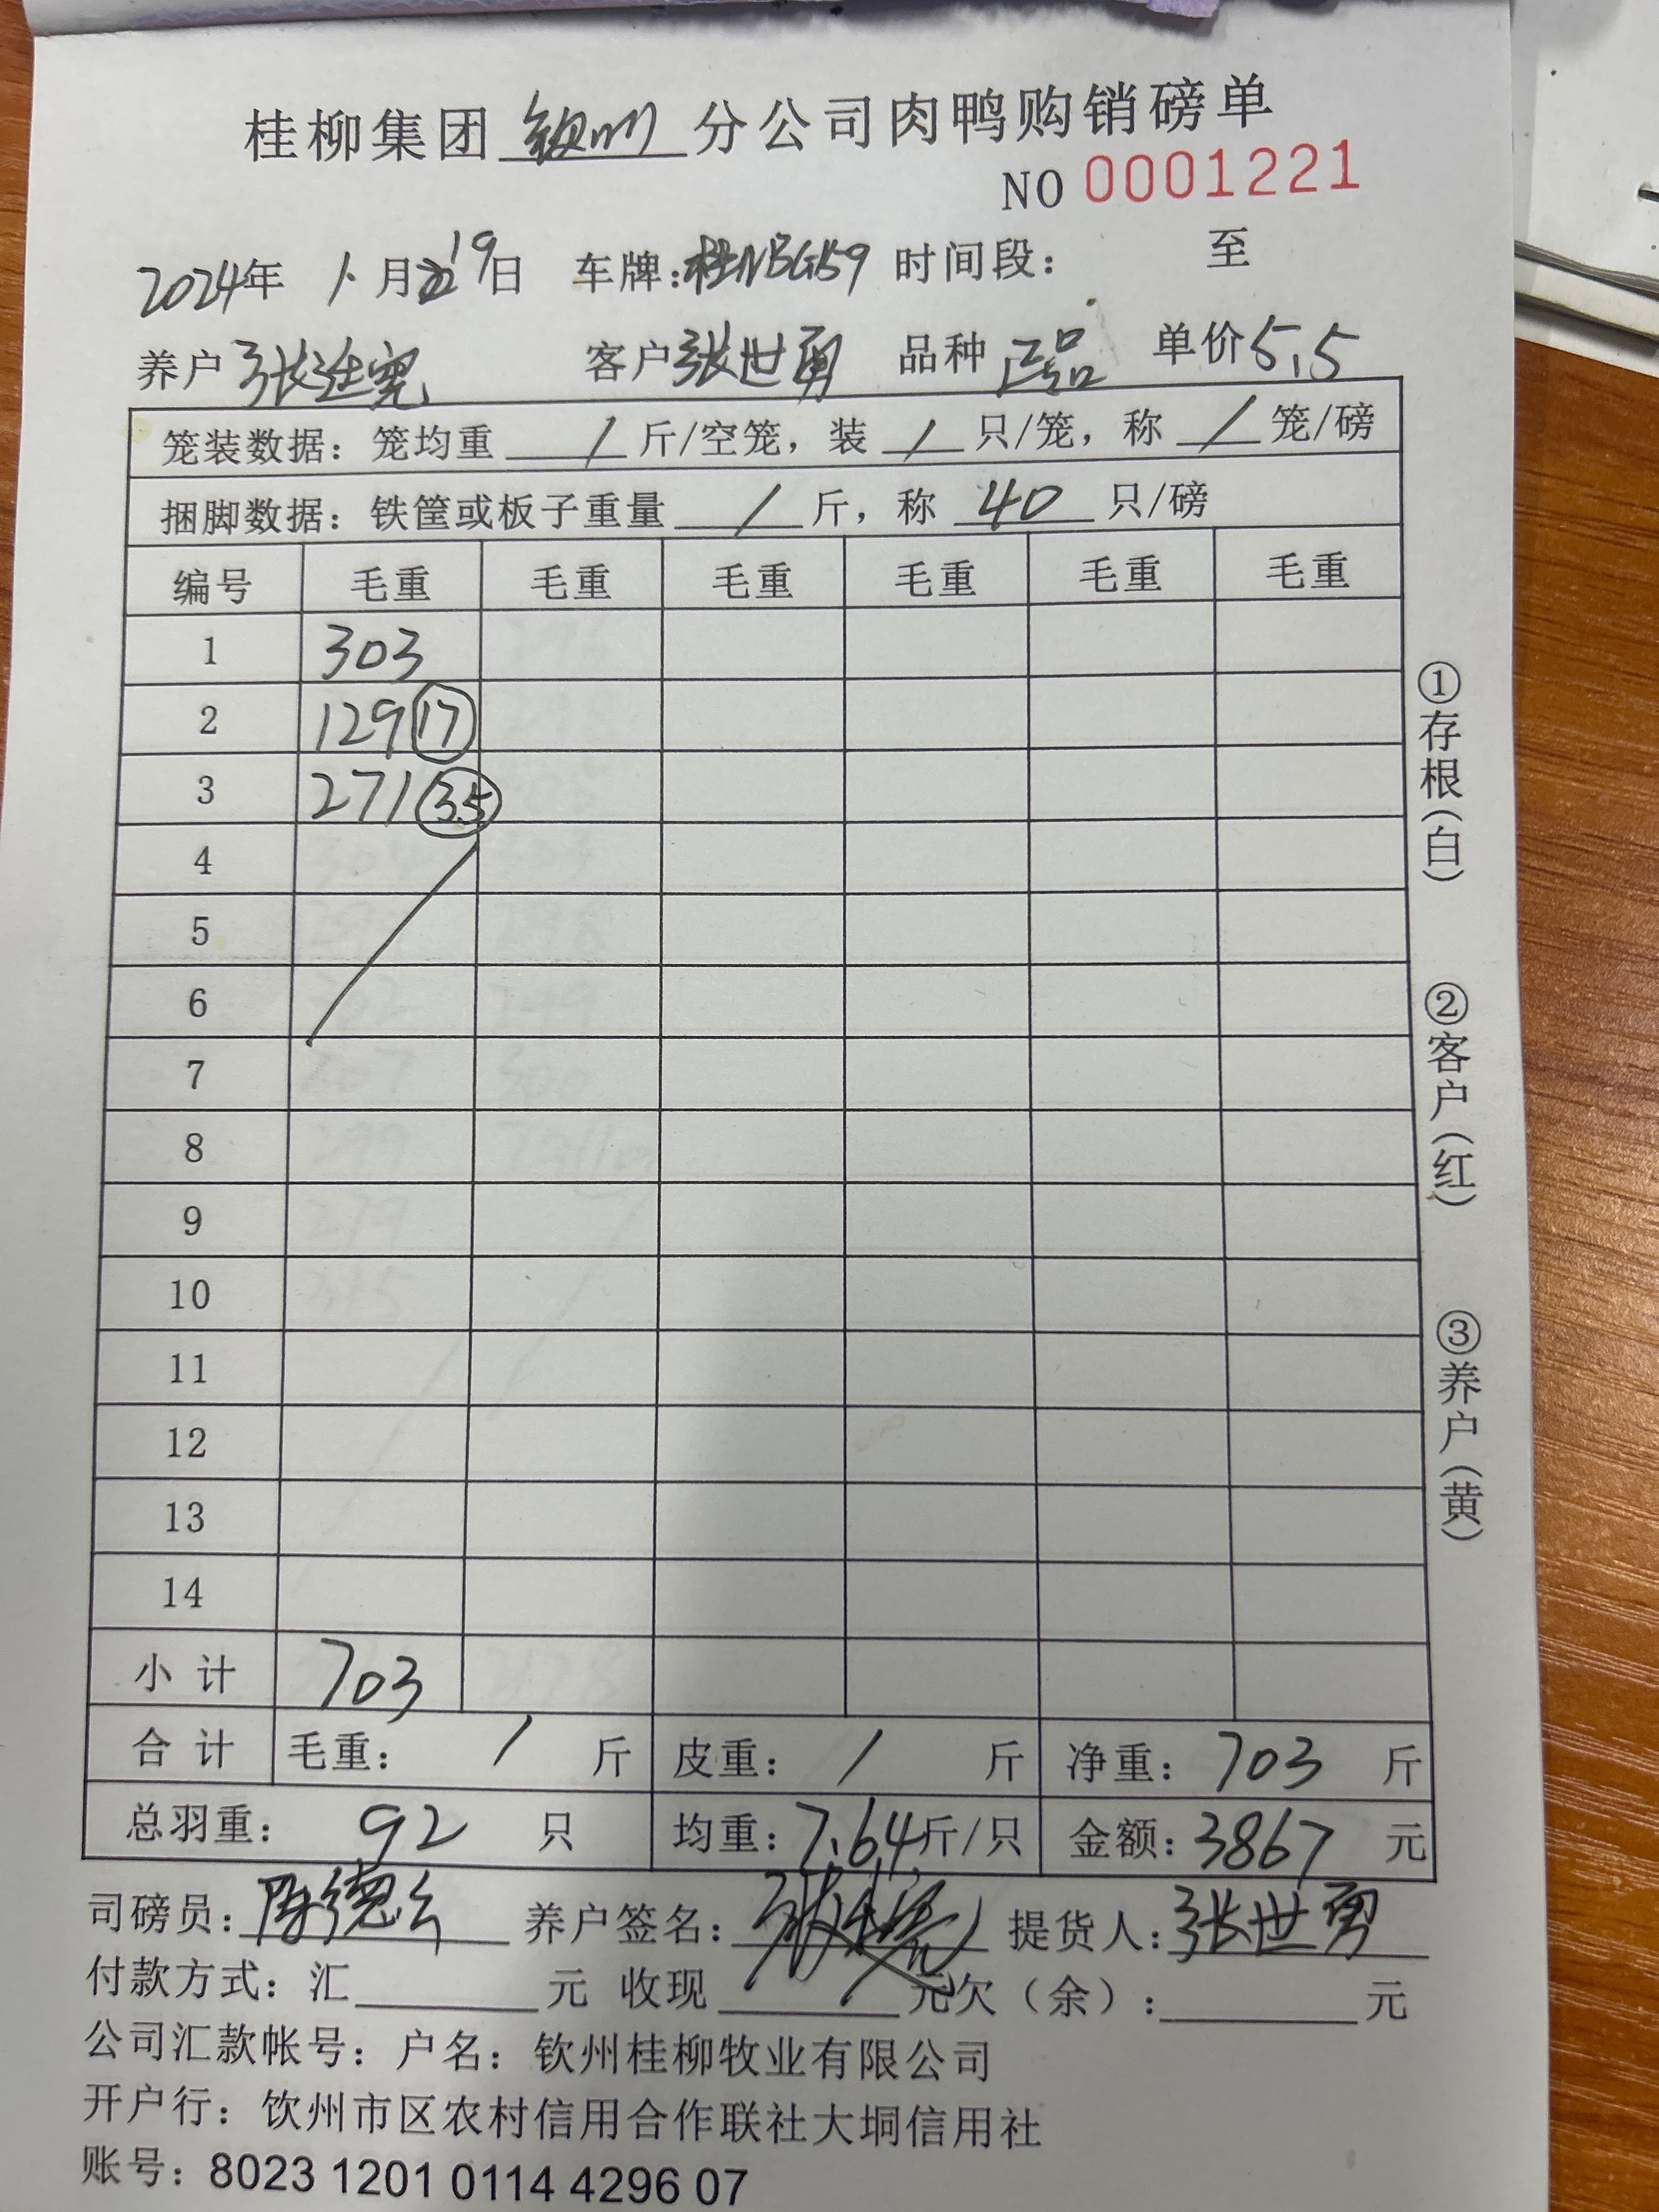 桂柳集团 钦州 分公司肉鸭购销磅单
NO 0001221
2024年 1月19日 车牌:桂NBG159 时间段: 至
养户 张 客户 张世勇 品种 正品 单价 5.5
笼装数据: 笼均重 / 斤/空笼, 装 / 只/笼, 称 / 笼/磅
捆脚数据: 铁筐或板子重量 / 斤, 称 40 只/磅
编号 毛重 毛重 毛重 毛重 毛重 毛重
1 303
2 129 17
3 271 35
4
5
6
7
8
9
10
11
12
13
14
小计 703
合计 毛重: / 斤 皮重: / 斤 净重: 703 斤
总羽重: 92 只 均重: 7.64 斤/只 金额: 3867 元
司磅员: 陈德 养户签名: 提货人: 张世勇
付款方式: 汇 元 收现 元 欠（余）: 元
公司汇款帐号: 户名: 钦州桂柳牧业有限公司
开户行: 钦州市区农村信用合作联社大垌信用社
账号: 8023 1201 0114 4296 07
①存根（白）
②客户（红）
③养户（黄）